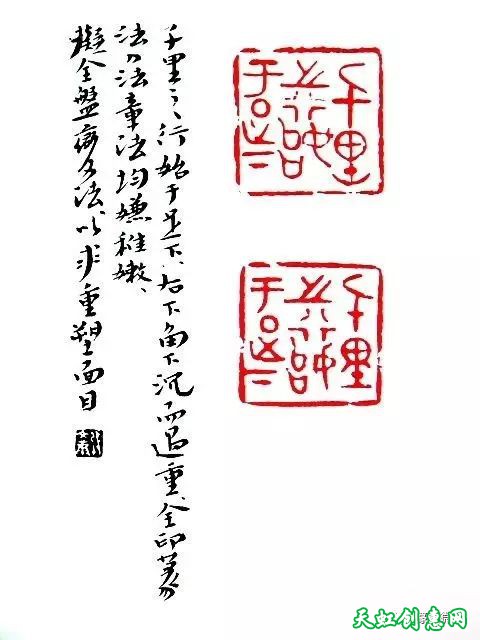 千里
之行始
于足下
千里
之行始
于足下
千里之行始于足下、右下角下沉而過重、全印篆
法刀法章法均嫌稚嫩、
擬全盤法以求重塑面目
天虹创意网